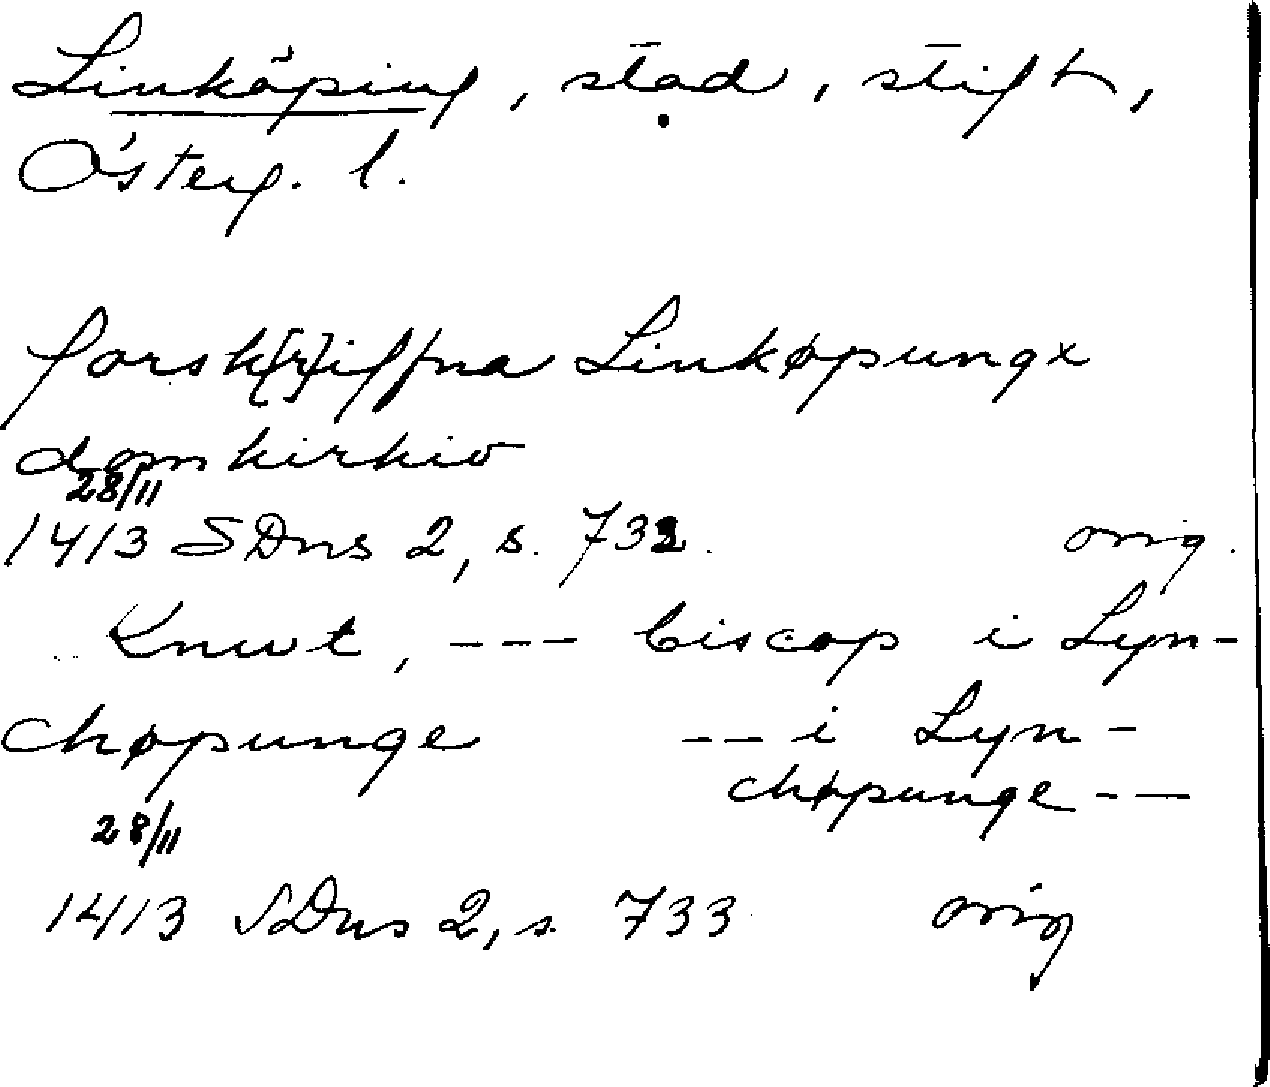 Linköping, stad, stift,
Österg. l.
forsk[r]iffna Linkøpungx
domkirkio
28/11
1413 SDns 2, s. 732. orig.
Knwt, --- biscop i Lyn-
chøpunge --- i Lyn-
chøpunge ---
28/11
1413 SDns 2, s. 733 orig